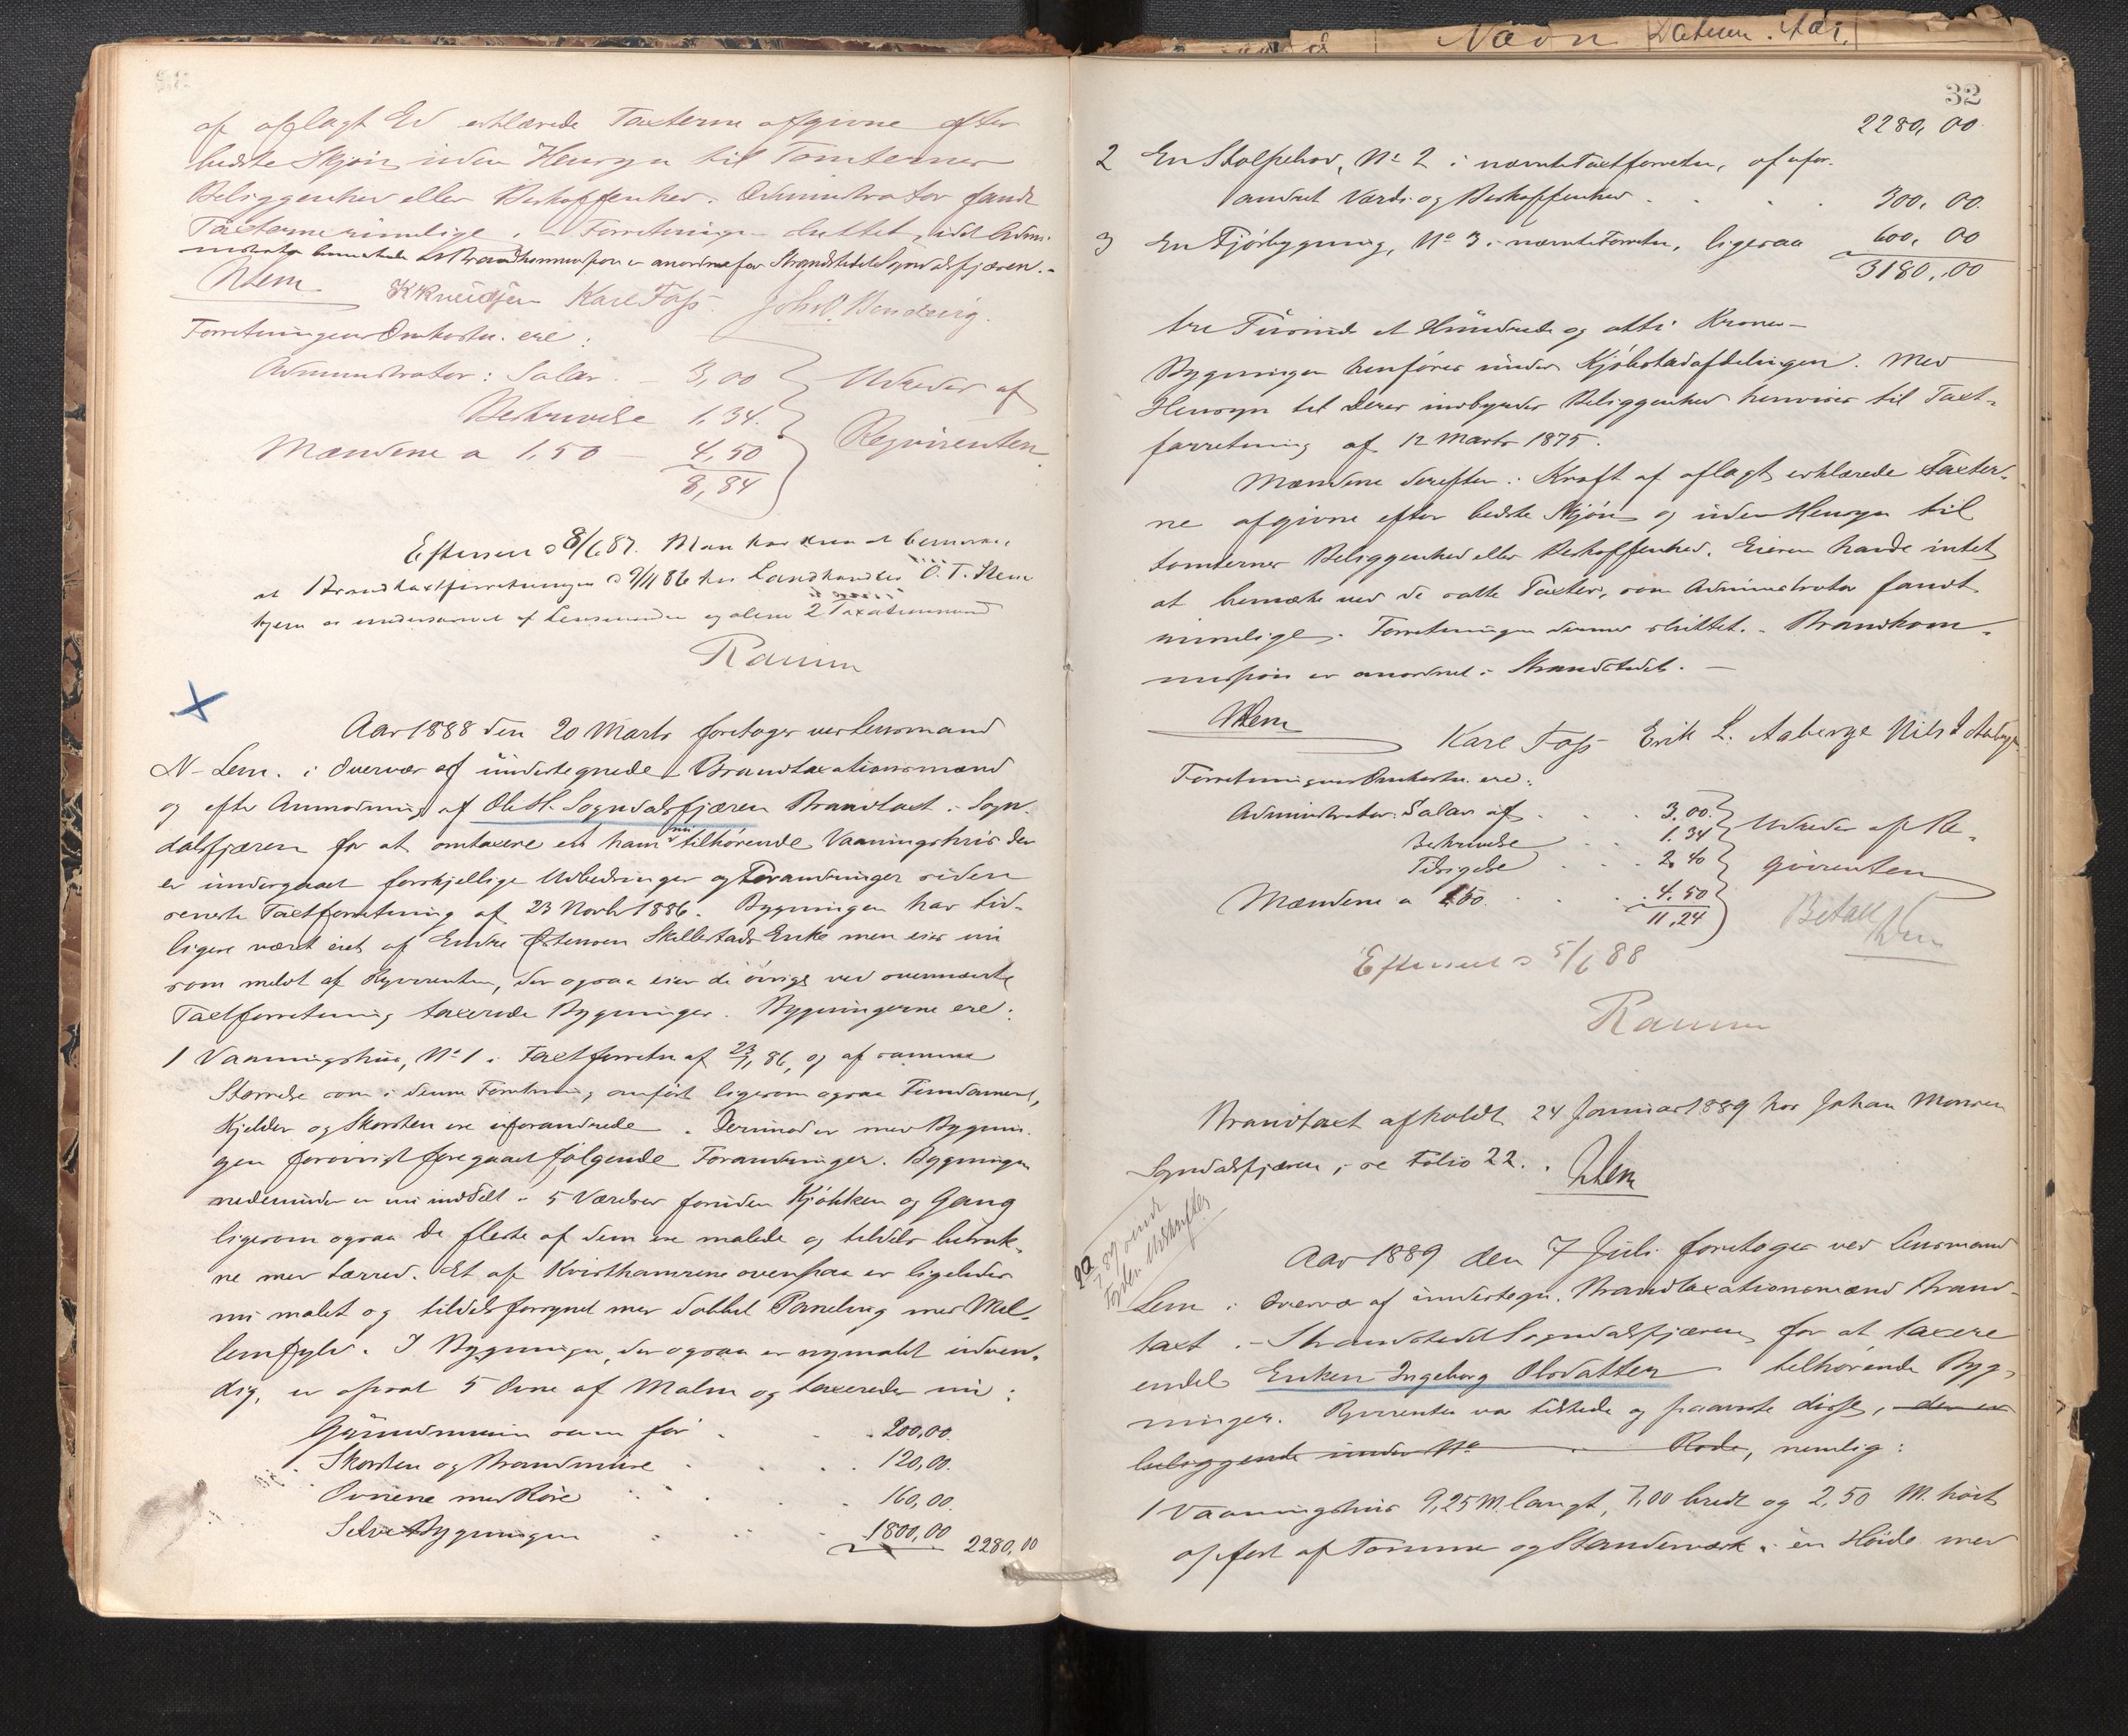 af aflagt Ed erklærede Taxterne afgivne efter
bedste Skjøn uden Hensyn til Tomternes
Beliggenhed eller Beskaffenhed. Administrator fandt
Taxterne rimelige. Forretningen sluttet, idet Admi-
nistrator bemærkede at Brandkommission er anordnet for Strandstedet Sogndalsfjæren.
NLem KKnudsen Karl Foss John
Forretningens Omkostn. ere:
Administrator: Salar. — 3,00 Udredes af
Beskrivelse 1,34. Reqvirenten.
Mændene a 1,50 — 4,50
8,84
Efterseet d 8/6 87. Man har kun at bemærke,
at Brandtaxtforretningen d 9/11 86 hos Landhandler O. T. Stein
er underskrevet af Lensmanden og alene 2 Taxationsmænd
Ramm
Aar 1888 den 20 Marts foretoges ved Lensmand
N. Lem. i Overvær af undertegnede Brandtaxationsmænd
og efter Anmodning af Ole H. Sogndalsfjæren Brandtaxt i Sogn-
dalsfjæren for at omtaxere et ham nu tilhørende Vaaningshus der
er undergaaet forskjellige Udbedringer og Forandringer siden
seneste Taxtforretning af 23 Novbr 1886. Bygningen har tid-
ligere været eiet af Endre Østensen Skjellestads Enke men eies nu
som meldt af Reqvirenten, der ogsaa eier de øvrige ved ovennævnte
Taxtforretning taxerede Bygninger. Bygningerne ere:
1 Vaaningshus, No 1 i Taxtforretn. af 23/11 86, og af samme
Størrelse som i denne Forretning anført ligesom ogsaa Fundament,
Kjelder og Skorsten ere uforandrede. Derimod er med Bygnin-
gen forøvrigt foregaaet følgende Forandringer. Bygningen
nedenunder er nu inddelt i 5 Værelser foruden Kjøkken og Gang
ligesom ogsaa de fleste af dem ere malede og tildels betruk-
ne med Lærred. Et af Kvistkamrene ovenpaa er ligeledes
nu malet og tildels forsynet med dobbel Paneling med Mel-
lemfyld. I Bygningen, der ogsaa er nymalet udven-
dig, er opsat 5 Ovne af Malm og taxeredes nu:
Grundmuren som før . . 200,00.
Skorsten og Brandmure . . 120,00.
Ovnene med Rør . . 160,00.
Selve Bygningen . . 1800,00 2280,00
32
2280,00.
2 En Stolpebod, No 2 i nævnte Taxtforretn, af ufor-
andret Værdi og Beskaffenhed . . . 300,00.
3 En Fjøsbygning, No 3 i nævnte Forretn, ligesaa 600,00
3180,00
tre Tusinde et Hundrede og otti Kroner —
Bygningen henføres under Kjøbstadafdelingen. Med
Hensyn til deres indbyrdes Beliggenhed henvises til Taxt-
forretning af 12 Marts 1875.
Mændene derefter i Kraft af aflagt erklærede Taxter-
ne afgivne efter bedste Skjøn og uden Hensyn til
tomternes Beliggenhed eller Beskaffenhed. Eieren havde intet
at bemærke ved de satte Taxter, som Administrator fandt
rimelige. Forretningen dermed sluttet. - Brandkom-
mission er anordnet i Strandstedet. —
NLem Karl Foss Erik L. Aaberge Nils
Forretningens Omkostn. ere:
Administrator: Salar af . . . 3,00. Udredes af Re-
Beskrivelse . . . 1,34 qvirenten
Tilsigelse . . . 2,40
Mændene a 1,50. . . . 4,50
11,24 Betalt NLem
Efterseet d 5/6 88
Ramm
Brandtaxt afholdt 24 Januar 1889 hos Johan Monsen
Sogndalsfjæren, se Folio 22. NLem
Aar 1889 den 7 Juli foretoges ved Lensmand
Lem i Overvær af undertegn. Brandtaxationsmænd Brand-
taxt i Strandstedet Sogndalsfjæren for at taxere
endel Enken Ingeborg Olsdatter tilhørende Byg-
ninger. Reqvirenten var tilstede og paaviste disse, der er
beliggende under No Rode, nemlig:
1 Vaaningshus 9,25 M. langt, 7,00 bredt og 2,50 M. høit
opført af Tømmer og Standerværk i en Høide med